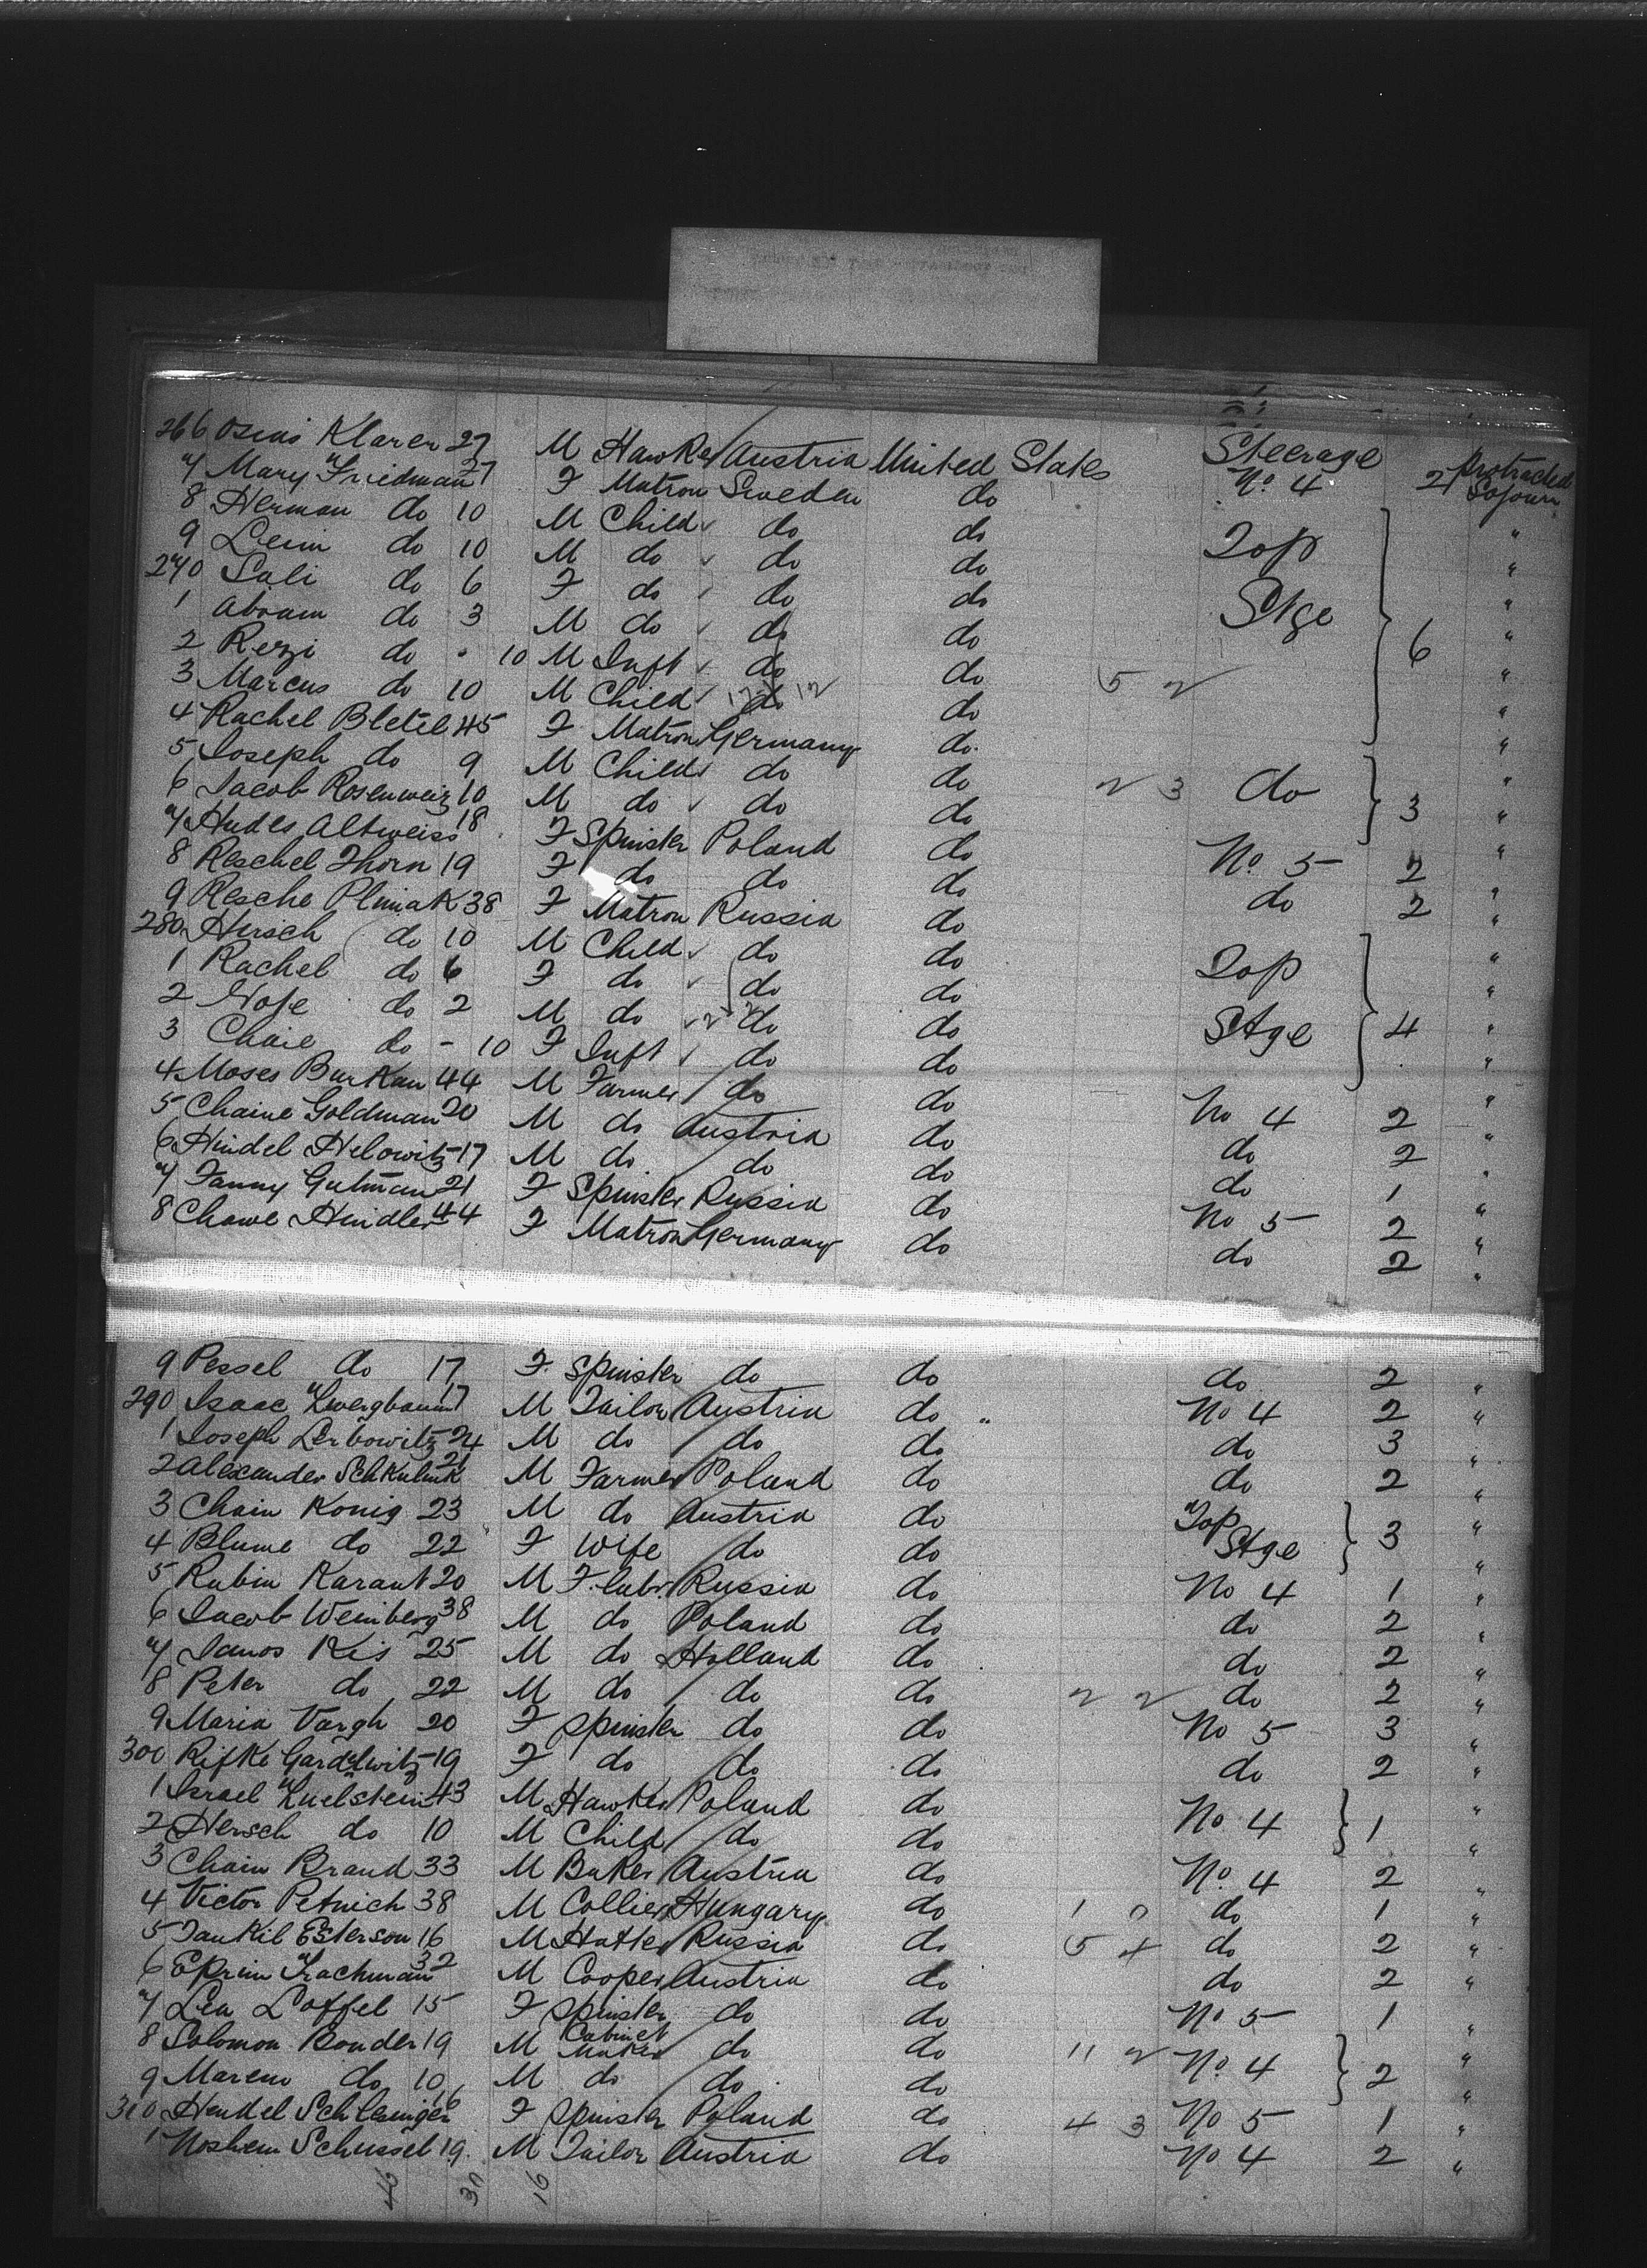 266 Osias Klarer 27 M Hawker Austria United States Steerage No. 4 2 Protracted Sojourn
7 Mary Friedman 27 F Matron Sweden do "
8 Herman do 10 M Child do do "
9 Leim do 10 M do do do Top "
270 Sali do 6 F do do do Stge "
1 Abram do 3 M do do do 6 "
2 Rezi do - 10 M Inft do do 5 2 "
3 Marcus do 10 M Child do do "
4 Rachel Bletel 45 F Matron Germany do "
5 Joseph do 9 M Child do do 2 3 do 3 "
6 Jacob Rosenweig 10 M do do do "
7 Hudes Altweiss 18 F Spinster Poland do No. 5 2 "
8 Reschel Thorn 19 F do do do do 2 "
9 Resche Plimak 38 F Matron Russia do "
280 Hirsch do 10 M Child do do Top "
1 Rachel do 6 F do do do "
2 do 2 M do do do Stge 4 "
3 Chaie do - 10 F Inft do do "
4 Moses Burkan 44 M Farmer do do No 4 2 "
5 Chaine Goldman 20 M do Austria do do 2 "
6 Hindel Helowitz 17 M do do do do 1 "
7 Fanny Gutman 21 F Spinster Russia do No 5 2 "
8 Chawe Hindler 44 F Matron Germany do do 2 "
9 Pessel do 17 F Spinster do do do 2 "
290 Isaac Zwergbaum 17 M Tailor Austria do " No 4 2 "
1 Joseph Lerbowitz 24 M do do do do 3 "
2 Alexander Schkulnik 21 M Farmer Poland do do 2 "
3 Chain Konig 23 M do Austria do Top Stge 3 "
4 Blume do 22 F Wife do do "
5 Rubin Karant 20 M F. labr. Russia do No 4 1 "
6 Jacob Weinberg 38 M do Poland do do 2 "
7 Janos Kis 25 M do Holland do do 2 "
8 Peter do 22 M do do do 2 2 do 2 "
9 Maria Vargh 20 F Spinster do do No 5 3 "
300 Rifke 19 F do do do do 2 "
1 Israel Zuelstein 43 M Hawker Poland do No 4 1 "
2 Hersch do 10 M Child do do "
3 Chain Brand 33 M Baker Austria do No. 4 2 "
4 Victor Petnich 38 M Collier Hungary do 1 0 do 1 "
5 Jankil Esterson 16 M Hatter Russia do 5 4 do 2 "
6 Eprim Trachman 32 M Cooper Austria do do 2 "
7 Lea Loffel 15 F Spinster do do No 5 1 "
8 Solomon Bonder 19 M Cabinet Maker do do 11 2 No. 4 2 "
9 Mareno do 10 M do do do "
310 Hendel Schlesinger 16 F Spinster Poland do 4 3 No 5 1 "
1 Noshem Schussel 19 M Tailor Austria do No 4 2 "
46 30 16